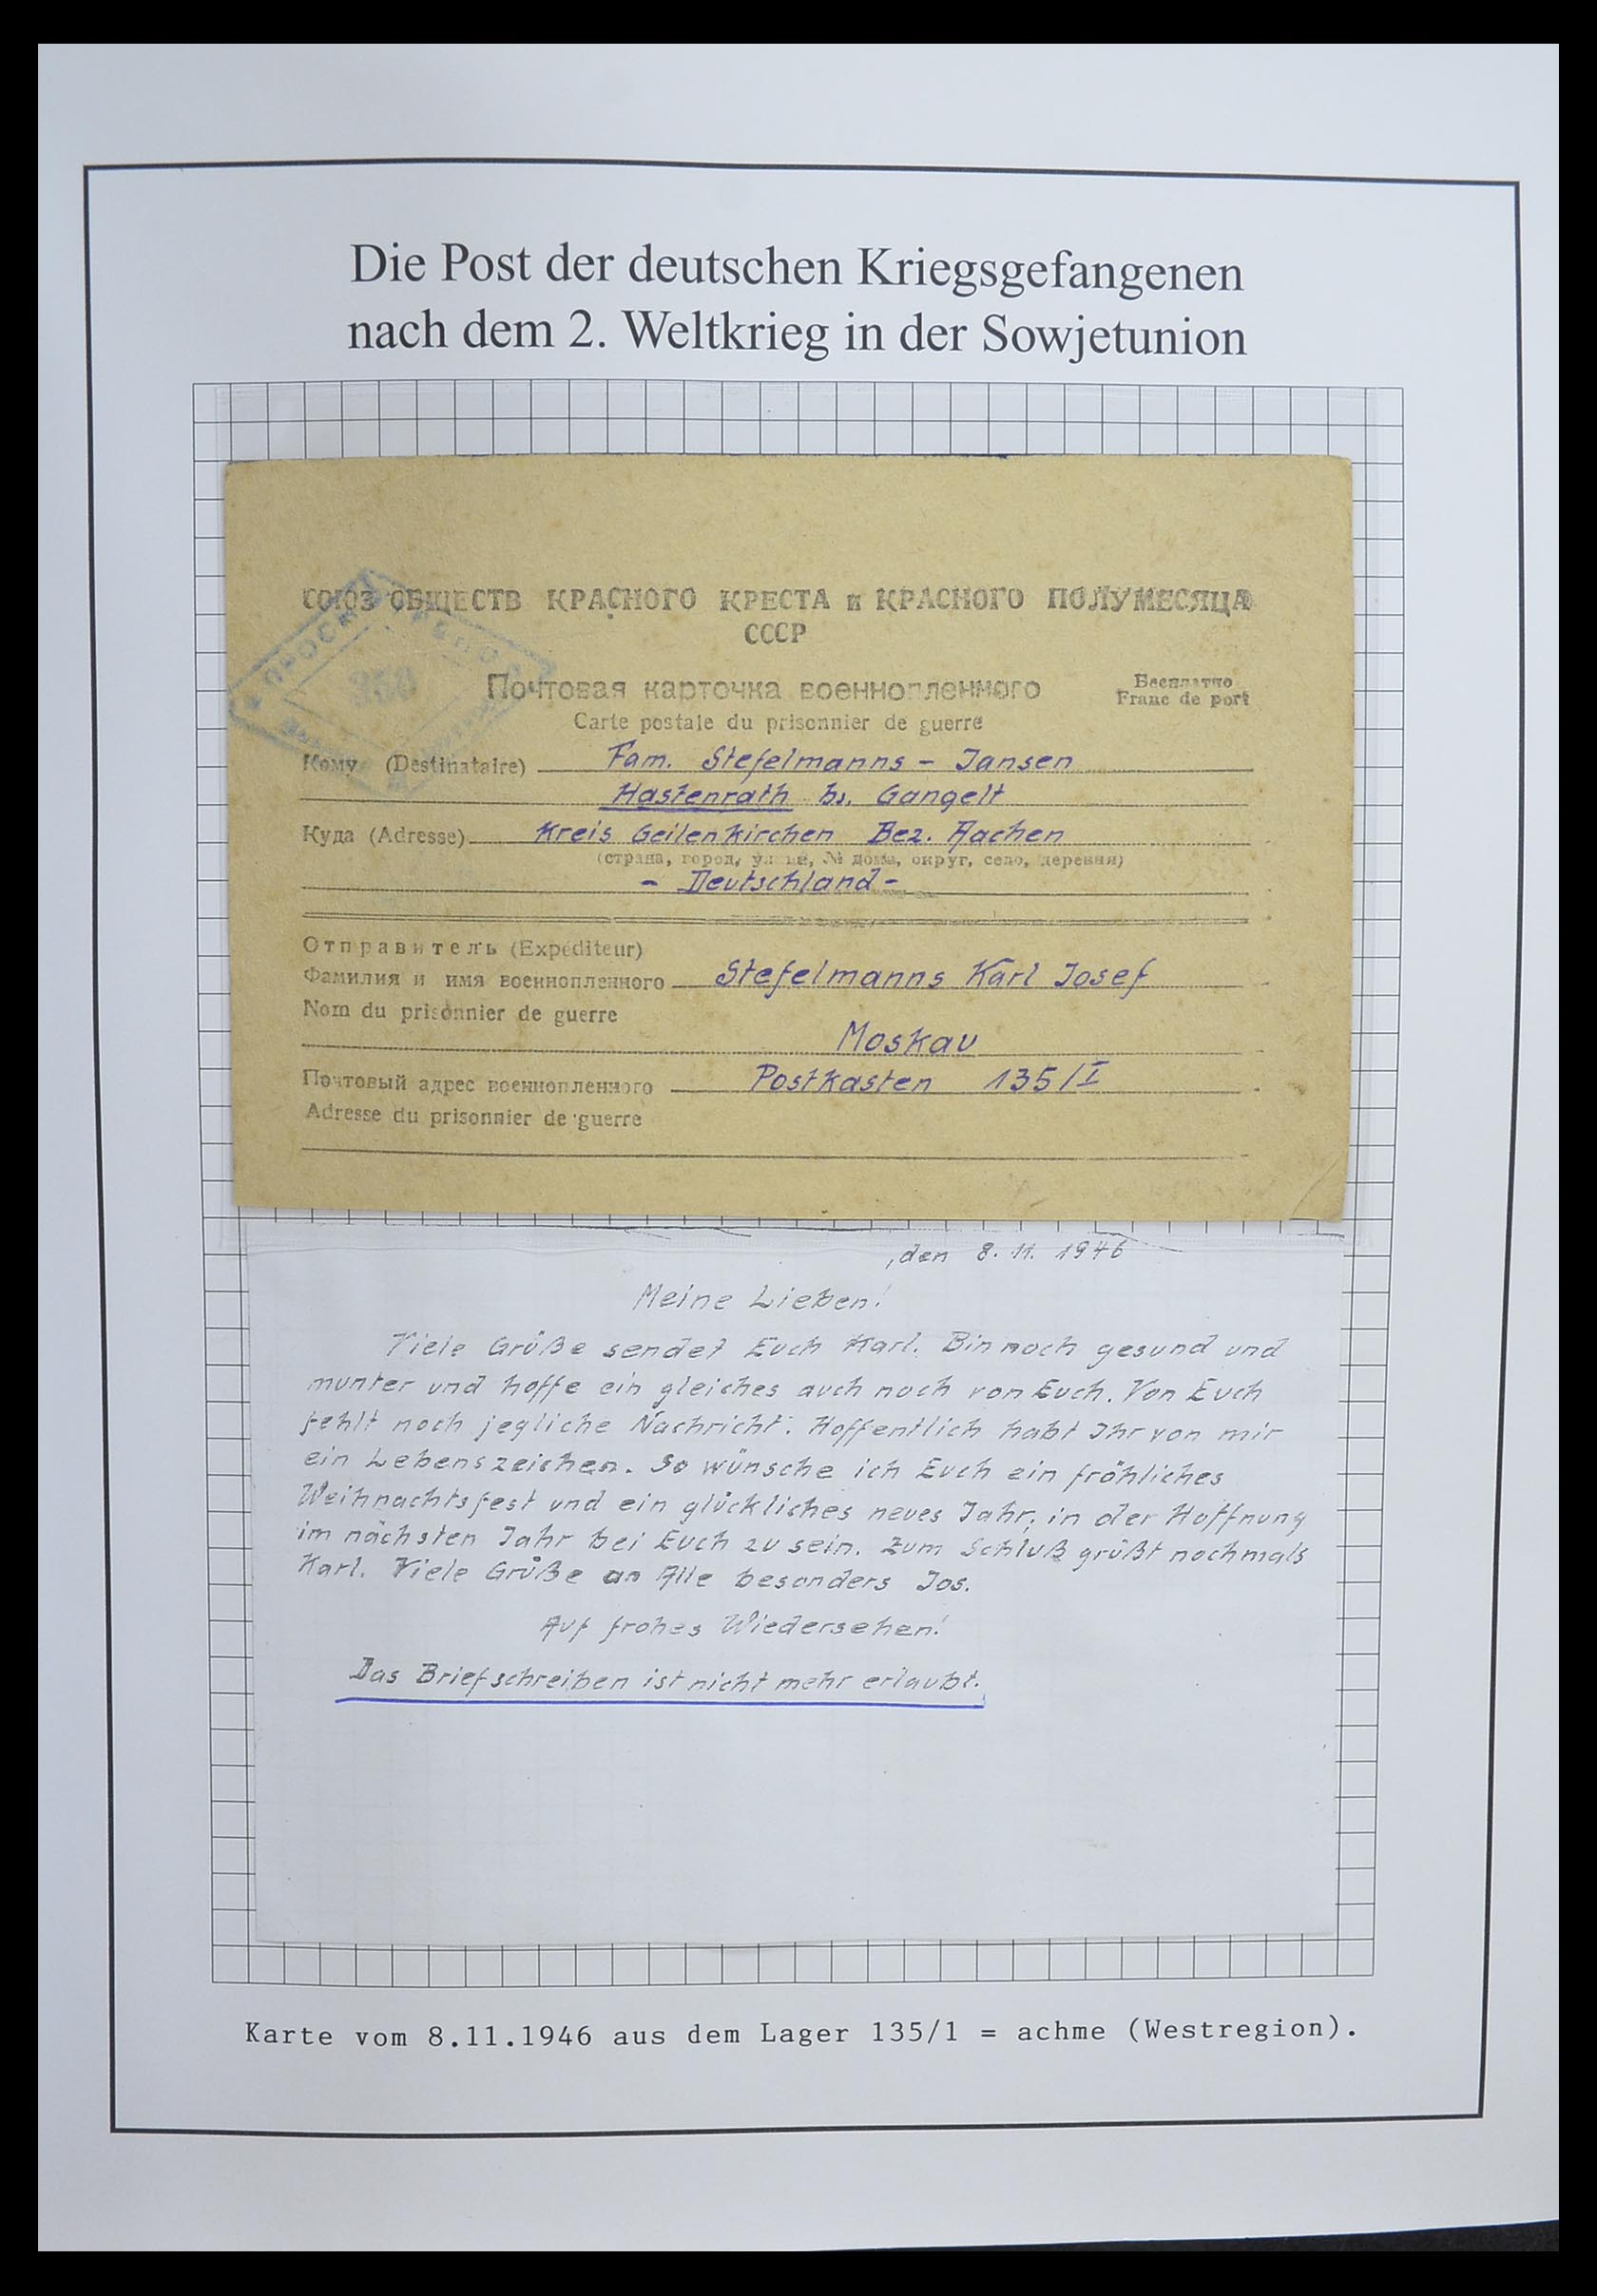 Die Post der deutschen Kriegsgefangenen
nach dem 2. Weltkrieg in der Sowjetunion
СОЮЗ ОБЩЕСТВ КРАСНОГО КРЕСТА и КРАСНОГО ПОЛУМЕСЯЦА
СССР
Почтовая карточка военнопленного
Бесплатно
Franc de port
Carte postale du prisonnier de guerre
Кому (Destinataire) Fam. Stefelmanns - Jansen
Hastenrath bs. Gangelt
Куда (Adresse) Kreis Geilenkirchen Bez. Aachen
(страна, город, улица, № дома, округ, село, деревня)
- Deutschland -
Отправитель (Expéditeur)
Фамилия и имя военнопленного Stefelmanns Karl Josef
Nom du prisonnier de guerre
Moskau
Почтовый адрес военнопленного Postkasten 135/I
Adresse du prisonnier de guerre
, den 8. 11. 1946
Meine Lieben!
Viele Grüße sendet Euch Karl. Bin noch gesund und
munter und hoffe ein gleiches auch noch von Euch. Von Euch
fehlt noch jegliche Nachricht. Hoffentlich habt Ihr von mir
ein Lebenszeichen. So wünsche ich Euch ein fröhliches
Weihnachtsfest und ein glückliches neues Jahr, in der Hoffnung
im nächsten Jahr bei Euch zu sein. Zum Schluß grüßt nochmals
Karl. Viele Grüße an Alle besonders Jos.
Auf frohes Wiedersehen!
Das Briefschreiben ist nicht mehr erlaubt.
Karte vom 8.11.1946 aus dem Lager 135/1 = achme (Westregion).